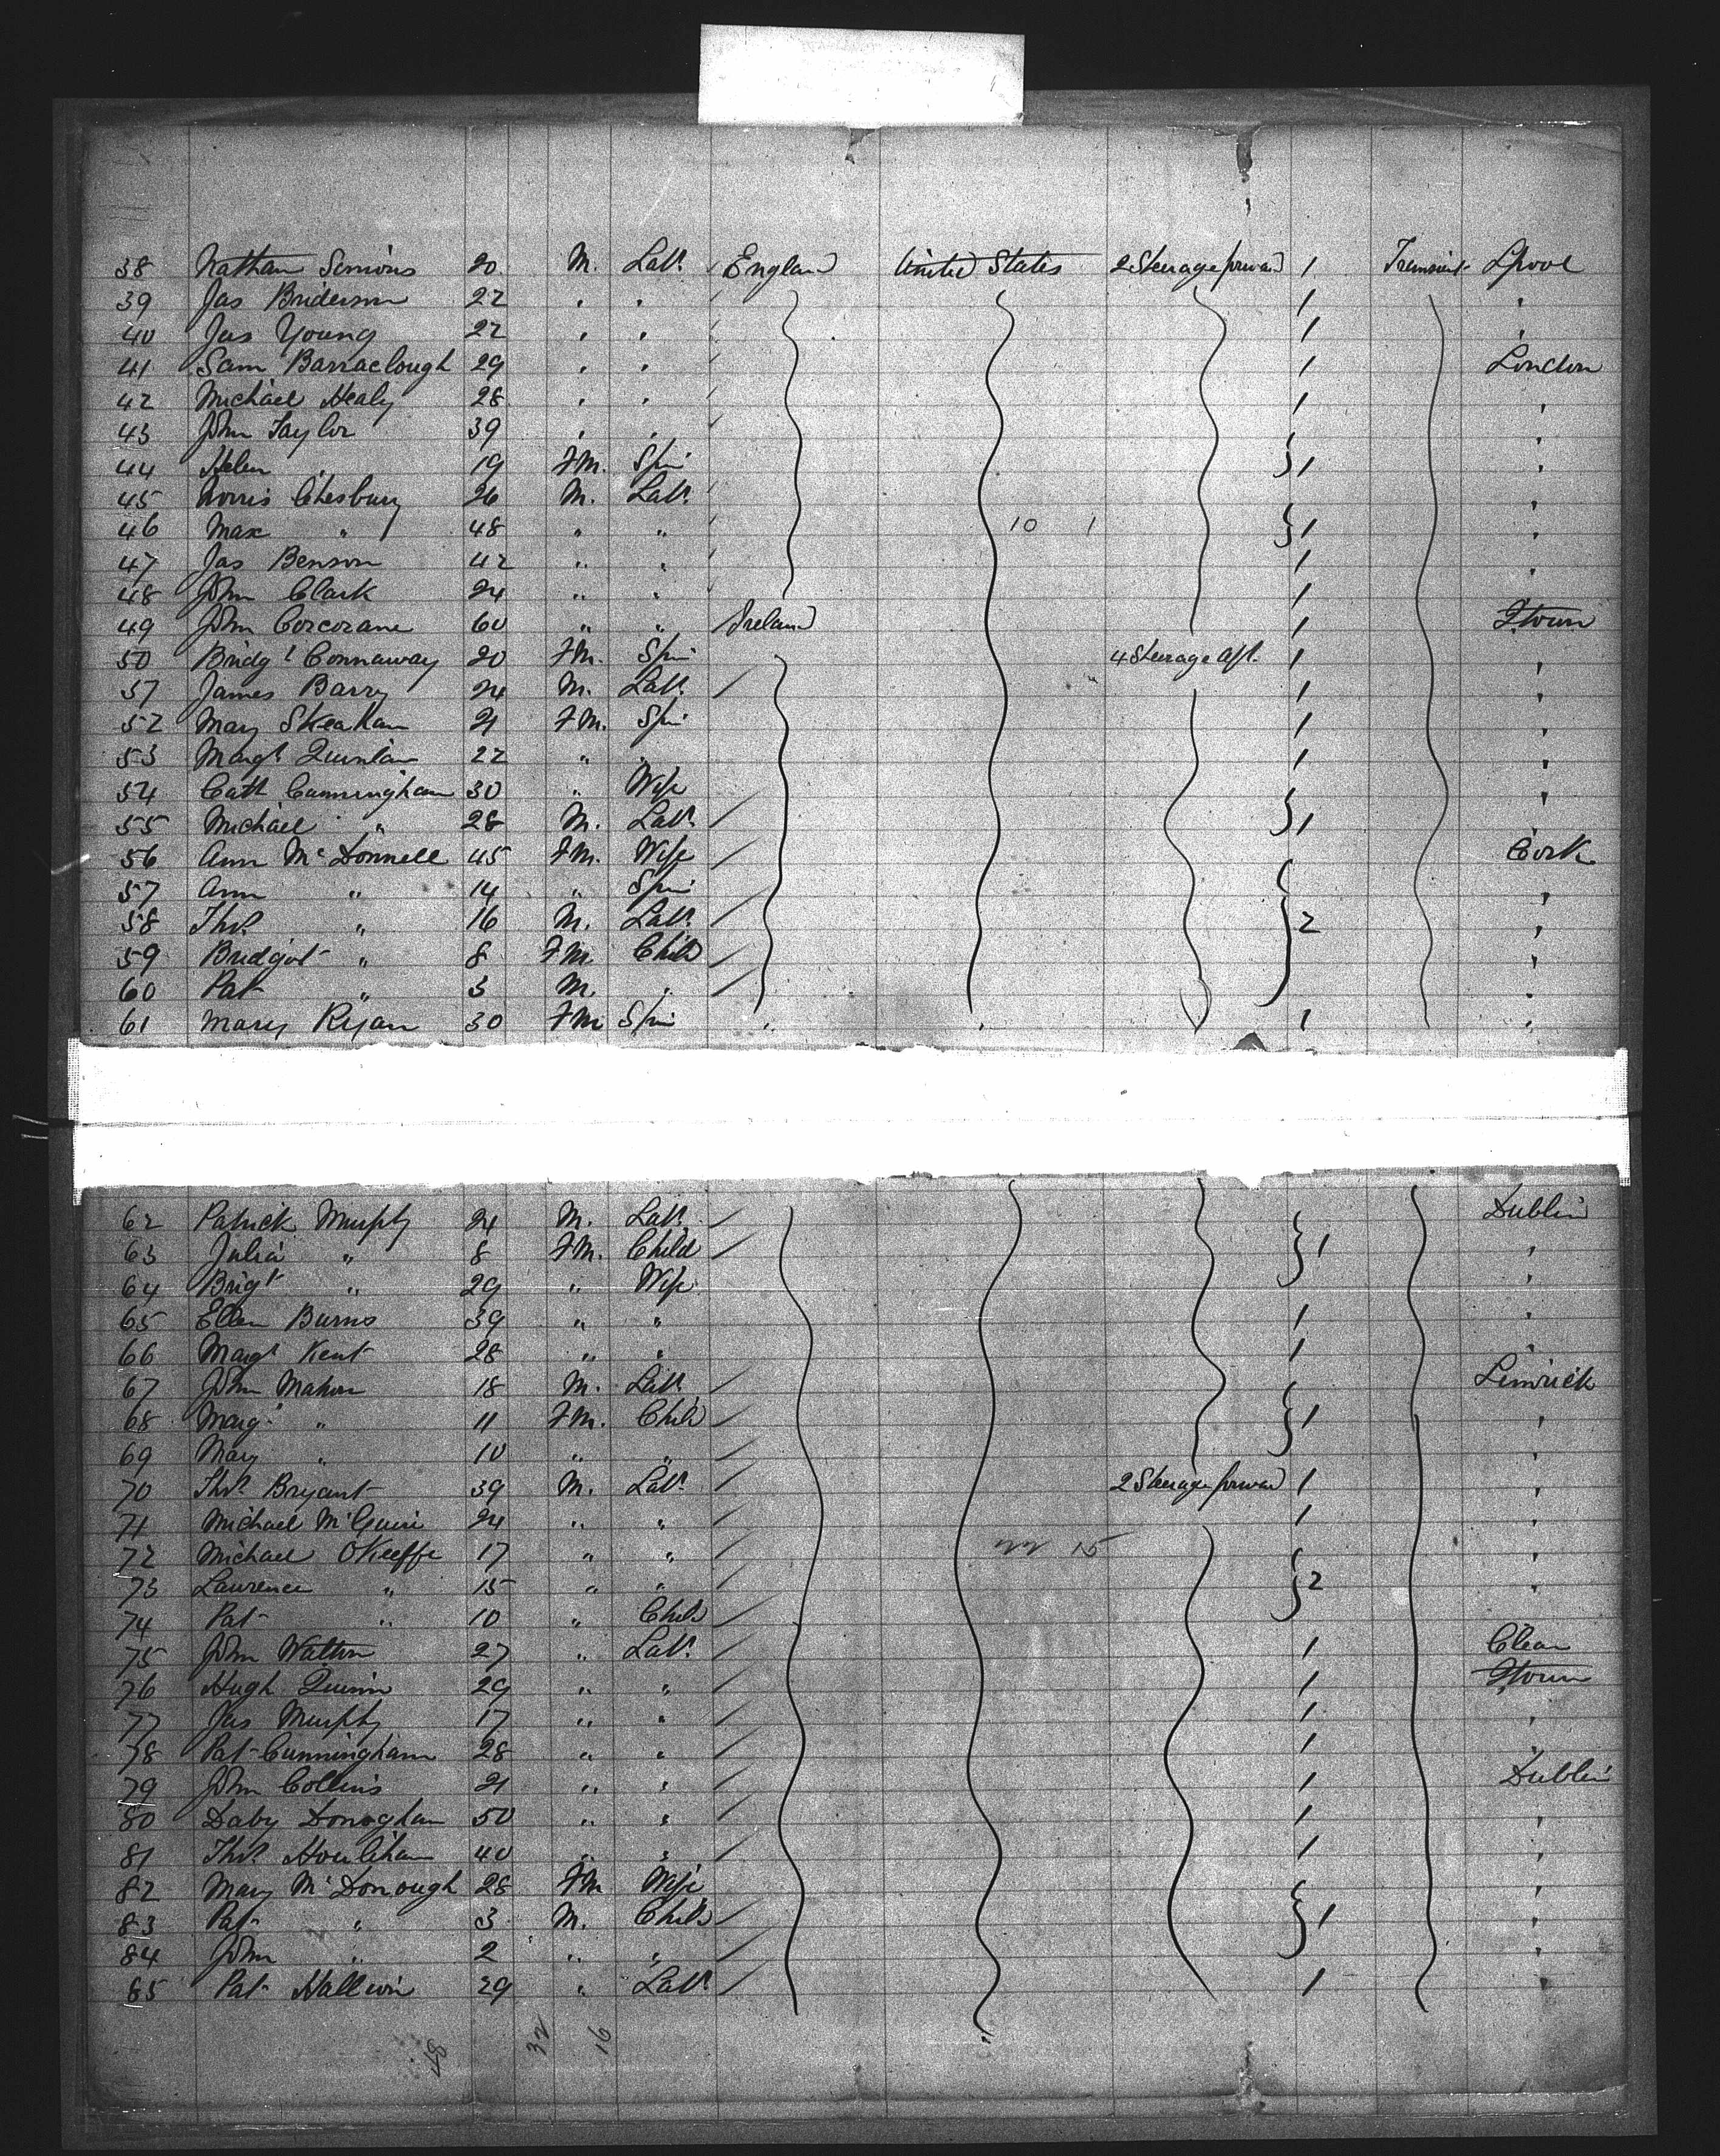 38 Nathan Simons 20 M. Labr. England United States 2 Steerage forward 1 Transient Lpool
39 Jas Briderson 22 " " 1 "
40 Jas Young 22 " " 1 "
41 Sam Barraclough 29 " " 1 London
42 Michael Healy 28 " " 1 "
43 John Taylor 39 " " "
44 Helen " 19 FM. Spin 1 "
45 Chesbury 26 M. Labr. "
46 Max " 48 " " 10 1 1 "
47 Jas Benson 42 " " 1 "
48 John Clark 24 " " 1 "
49 John Corcorane 60 " " Ireland 1 Qtown
50 Bridgt Connaway 20 FM. Spin 4 Steerage Aft. 1 "
51 James Barry 24 M. Labr. 1 "
52 Mary Skeahan 21 FM. Spin 1 "
53 Margt Quinlan 22 " " 1 "
54 Cath Cunningham 30 " Wife "
55 Michael " 28 M. Labr. 1 "
56 Ann McDonnell 45 FM. Wife Cork
57 Ann " 14 " Spin "
58 Thos. " 16 M. Labr. 2 "
59 Bridget " 8 FM. Child "
60 Pat " 3 M. " "
61 Mary Ryan 30 FM Spin " " 1 "
62 Patrick Murphy 24 M. Labr. Dublin
63 Julia " 8 FM. Child 1 "
64 Brigt " 29 " Wife "
65 Ellen Burns 39 " " 1 "
66 Margt Kent 28 " " 1 "
67 John Mahon 18 M. Labr. Limrick
68 Margt " 11 FM. Child 1 "
69 Mary " 10 " " "
70 Thos. Bryant 39 M. Labr. 2 Steerage forward 1 "
71 Michael McGuire 24 " " 1 "
72 Michael OKeeffe 17 " " 15 "
73 Laurence " 15 " " 2 "
74 Pat " 10 " Child
75 John Walton 27 " Labr. 1 Clear
76 Hugh Quinn 29 " " 1 Qtown
77 Jas Murphy 17 " " 1 "
78 Pat Cunningham 28 " " 1 "
79 John Collins 21 " " 1 Dublin
80 Daby Donoghan 50 " " 1 "
81 Thos. Houlihan 40 " " 1 "
82 Mary McDonough 28 FM Wife "
83 Pat " 3 M. Child 1 "
84 John " 2 " " "
85 Pat Hallwin 29 " Labr. 1
48 32 16